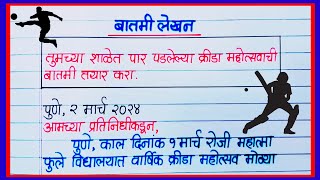 बातमी लेखन
तुमच्या शाळेत पार पडलेल्या क्रीडा महोत्सवाची
बातमी तयार करा.
पुणे, २ मार्च २०२४
आमच्या प्रतिनिधीकडून,
पुणे, काल दिनांक १ मार्च रोजी महात्मा
फुले विद्यालयात वार्षिक क्रीडा महोत्सव मोठ्या